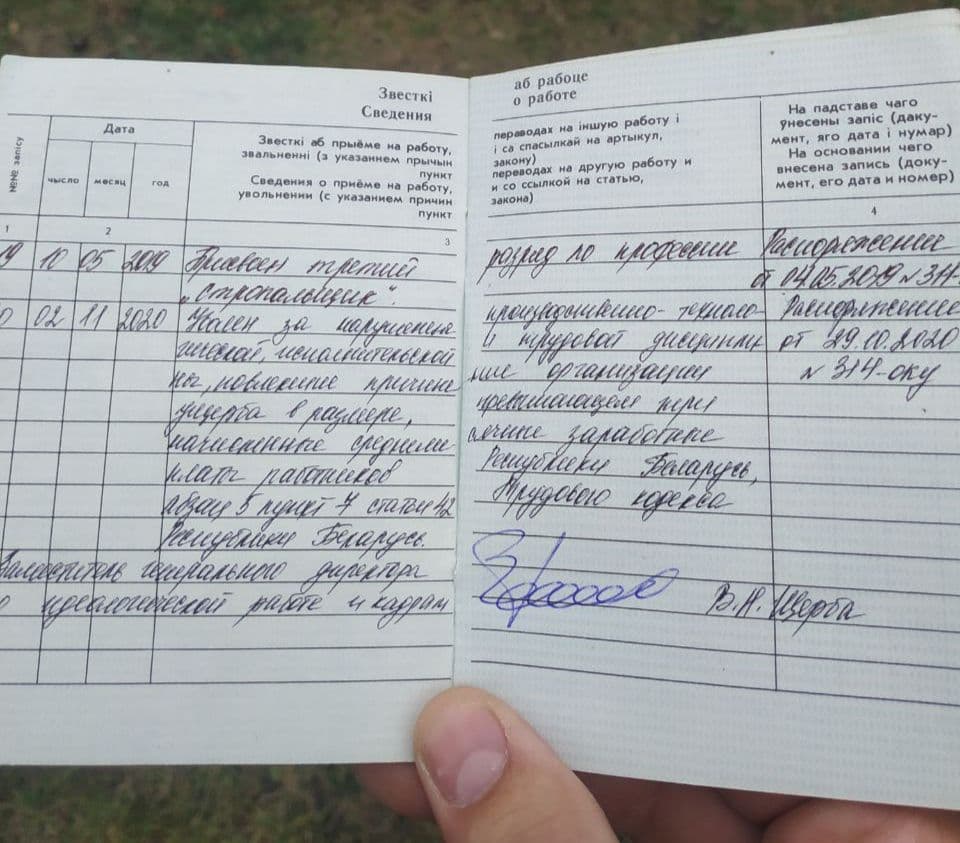 Звесткі аб рабоце
Сведения о работе
запісу
Дата
чысло месяц год
Звесткі аб прыёме на работу, пераводах на іншую работу і
звальненні (з указаннем прычын і са спасылкай на артыкул,
пункт закону)
Сведения о приёме на работу, переводах на другую работу и
увольнении (с указанием причин и со ссылкой на статью,
пункт закона)
На падставе чаго
ўнесены запіс (даку-
мент, яго дата і нумар)
На основании чего
внесена запись (доку-
мент, его дата и номер)
1 2 3 4
9 10 05 2019 Присвоен третий разряд по профессии Распоряжение
„стропальщик“. от 04.05.2019 № 314-
0 02 11 2020 Уволен за нарушения производственно-техноло Распоряжение
гической, исполнительской и трудовой дисципли от 29.10.2020
ны, повлекшие причине ние организации № 314-оку
ущерба в размере, превышающем три
начисленные среднеме сячные заработные
платы работников Республики Беларусь,
абзац 5 пункт 7 статьи 42 Трудового кодекса
Республики Беларусь.
Заместитель генерального директора
о идеологической работе и кадрам В.Н. Щерба